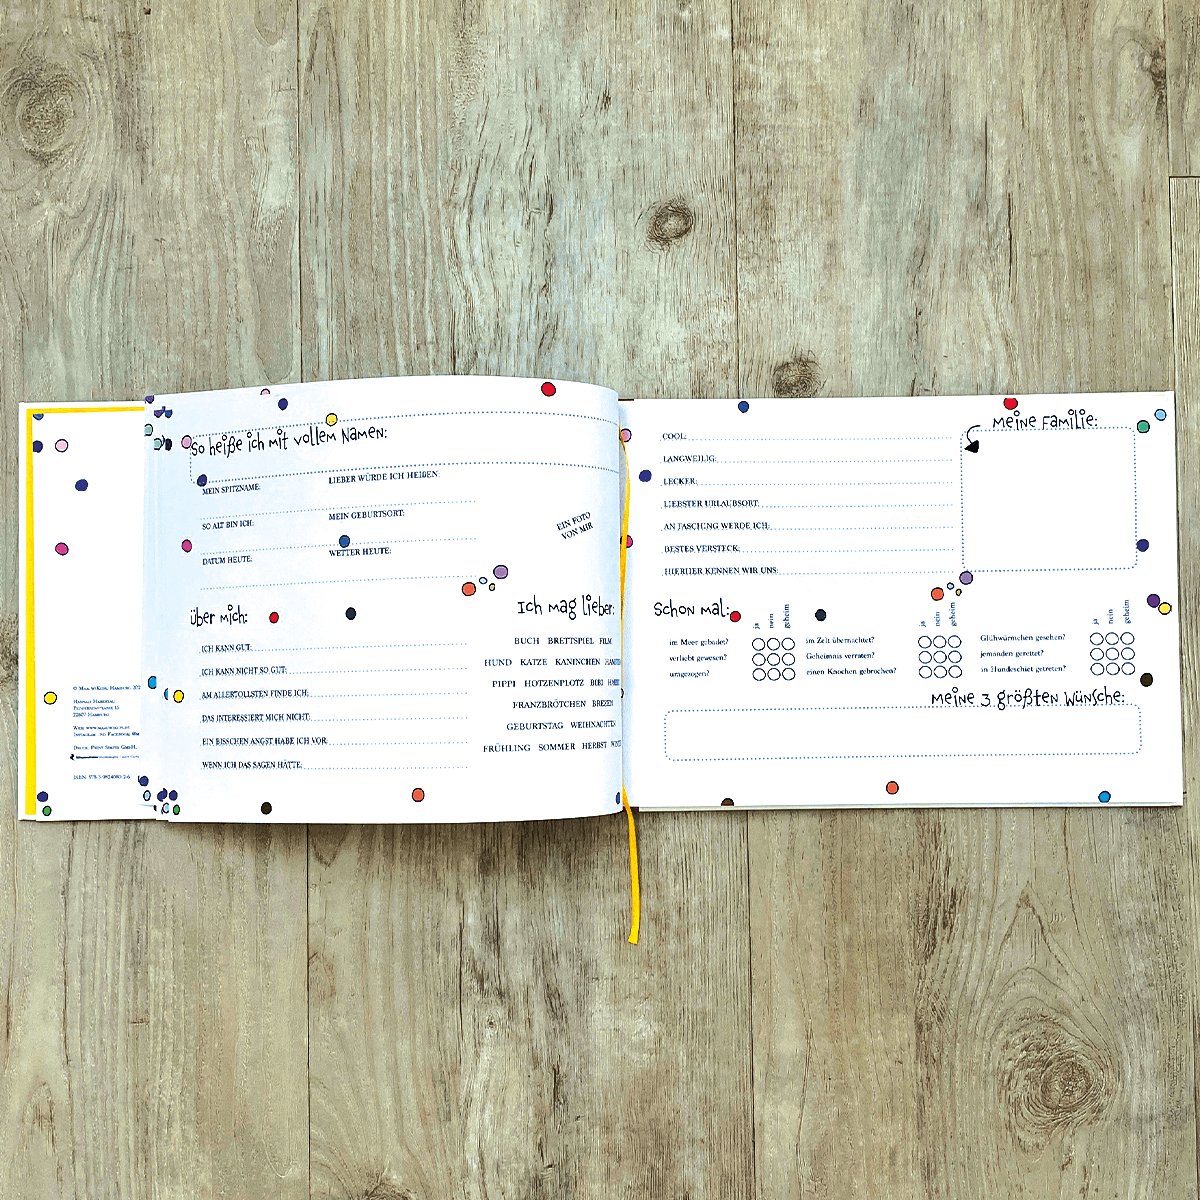 © Mak-si-Kuss, Hamburg 202
Hannah Habertal
22607 Hamburg
Druck: Print Simply GmbH,
So heiße ich mit vollem Namen:
MEIN SPITZNAME:
LIEBER WÜRDE ICH HEIßEN:
SO ALT BIN ICH:
MEIN GEBURTSORT:
DATUM HEUTE:
WETTER HEUTE:
EIN FOTO
VON MIR
über mich:
ICH KANN GUT:
ICH KANN NICHT SO GUT:
AM ALLERTOLLSTEN FINDE ICH:
DAS INTERESSIERT MICH NICHT:
EIN BISSCHEN ANGST HABE ICH VOR:
WENN ICH DAS SAGEN HÄTTE:
Ich mag lieber:
BUCH BRETTSPIEL FILM
HUND KATZE KANINCHEN
PIPPI HOTZENPLOTZ BIBI
FRANZBRÖTCHEN BREZEN
GEBURTSTAG WEIHNACHTEN
FRÜHLING SOMMER HERBST
COOL:
LANGWEILIG:
LECKER:
LIEBSTER URLAUBSORT:
AN FASCHING WERDE ICH:
BESTES VERSTECK:
HIERHER KENNEN WIR UNS:
Meine Familie:
Schon mal:
ja nein geheim
im Meer gebadet?
verliebt gewesen?
umgezogen?
ja nein geheim
im Zelt übernachtet?
Geheimnis verraten?
einen Knochen gebrochen?
ja nein geheim
Glühwürmchen gesehen?
jemanden gerettet?
in Hundeschiet getreten?
Meine 3 größten Wünsche: